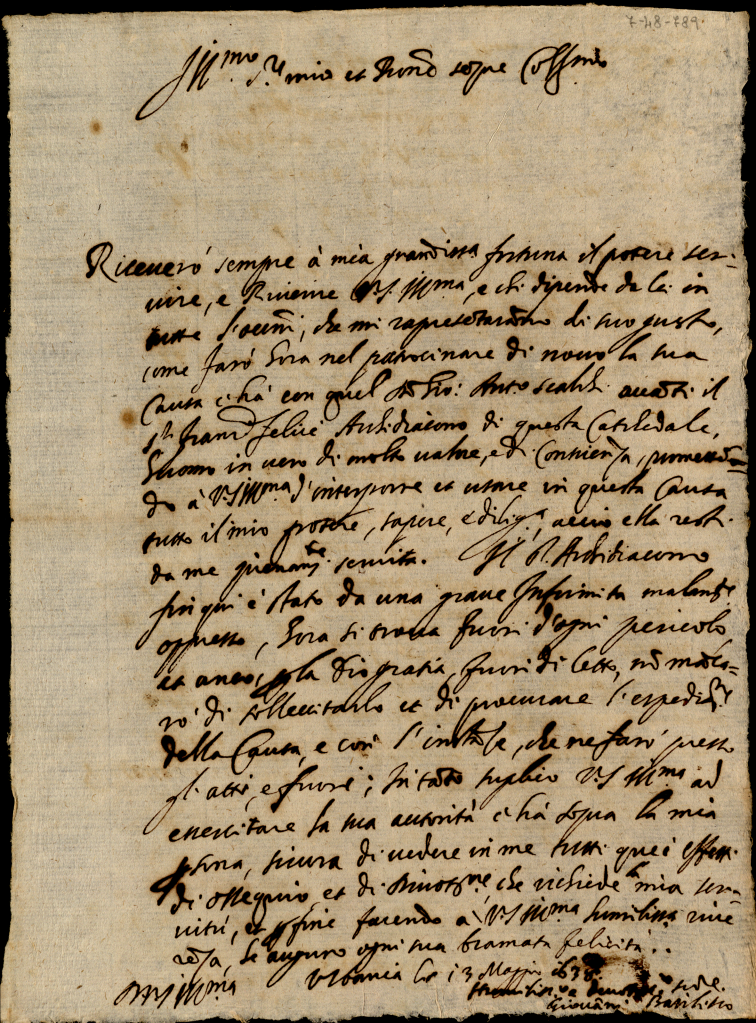 7-48-789.
Ill.mo S.re mio et Pron̄e sopre Coll.mo
Riceverò sempre à mia grandissa. fortuna il potere ser-
uire, e Riuerire V.S. Ill.ma, e chi dipende da lei in
tutte l'occni, che mi rapresētarāno di suo gusto,
come farò hora nel patrocinare di nouo la sua
Causa c'hà con quel Gio: Anto. auāti il
Sr. Franc.o Felici Archidiacono di questa Catthedale,
huomo in uero di molto ualore, e di Conscienza, promettē-
do à V.S. Ill.ma d'interporre et usare in questa Causa
tutto il mio potere, sapere, e dilig.a, accio ella resti
da me pienamte. seruita. Il S. Archidiacono
fin qui è stato da una graue Infirmità malamte.
oppresso, hora si troua fuori d'ogni pericolo,
et anco, p la Dio gratia, fuori di letto, nō mācа-
rò di sollecitarlo et di procurare l'expedit.ne
della Causa, e cosi l'instāze, che ne farò presso
gli atti, e fuori; In tāto suplico V.S. Ill.ma ad
essercitare la sua autorità c'hà sopra la mia
psona, sicura di uedere in me tutti quei effetti
di ossequio, et di che richiede la mia ser-
uitù, et p fine facendo a V.S. Ill.ma humilissa. riue-
rēza, le auguro ogni sua bramata felicità..
Urbania li 13 Maggio 163
DVS Ill.ma
Humiliss.o e Deuotiss.o ser.e
Giouāni Basilisco